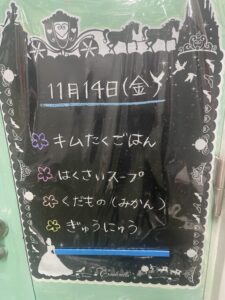 11月14日(金)
キムたくごはん
はくさいスープ
くだもの(みかん)
ぎゅうにゅう
Cinderella